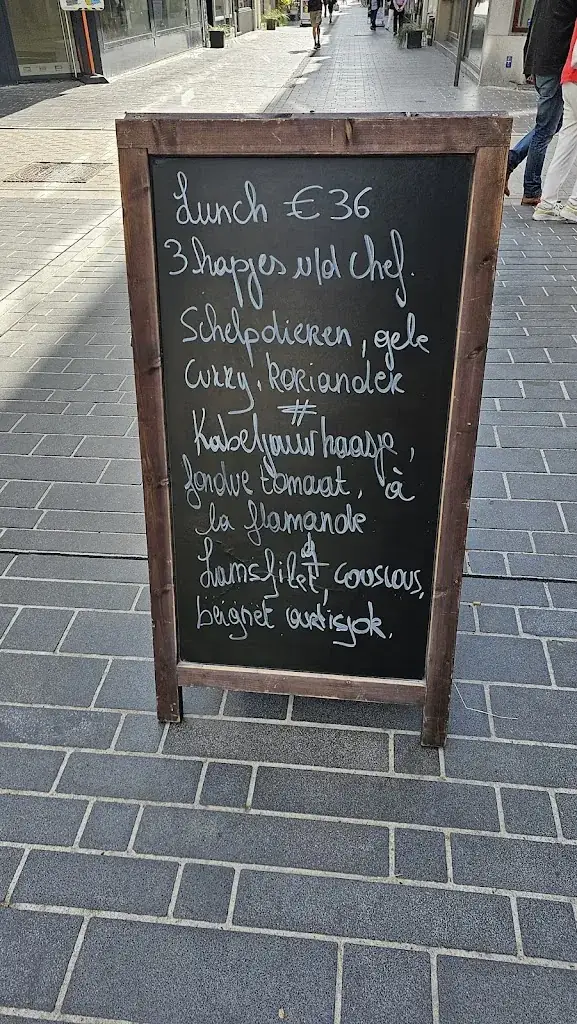 Lunch €36
3 hapjes v/d chef.
Schelpdieren, gele
curry, koriander
#
Kabeljauwhaasje,
fondue tomaat, à
la flamande
of
Lamsfilet, couscous,
beignet artisjok.